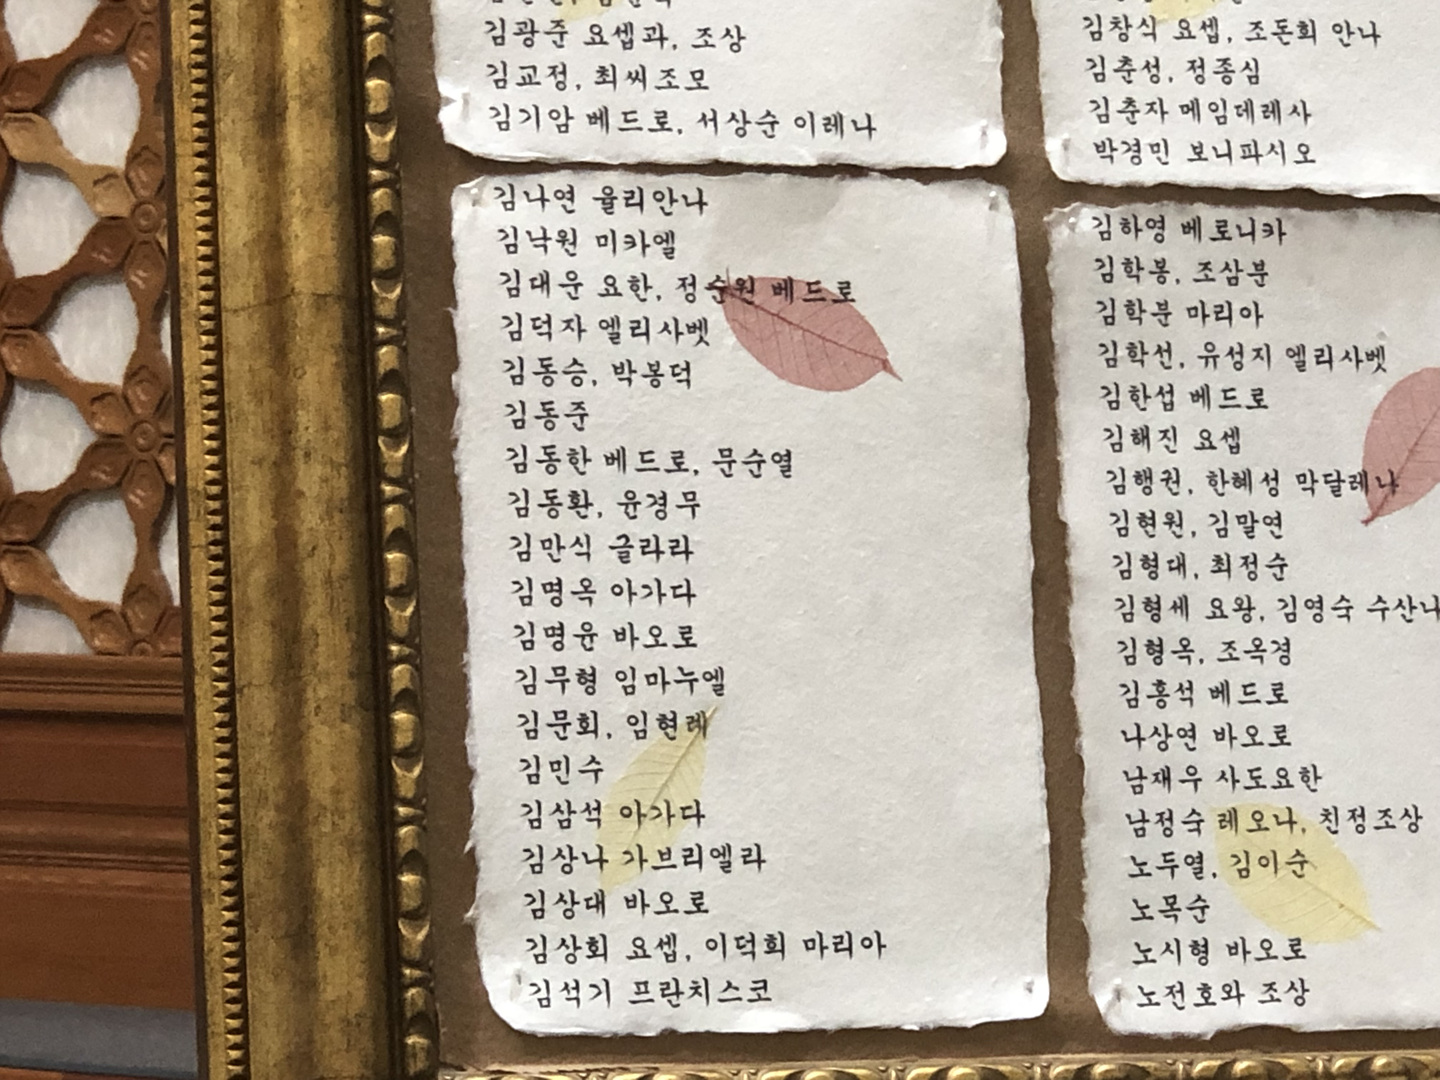 김광준 요셉과, 조상
김교정, 최씨조모
김기암 베드로, 서상순 이레나
김나연 율리안나
김낙원 미카엘
김대운 요한, 정순원 베드로
김덕자 엘리사벳
김동승, 박봉덕
김동준
김동한 베드로, 문순열
김동환, 윤경무
김만식 글라라
김명옥 아가다
김명윤 바오로
김무형 임마누엘
김문회, 임현례
김민수
김삼석 아가다
김상나 가브리엘라
김상대 바오로
김상회 요셉, 이덕희 마리아
김석기 프란치스코
김창식 요셉, 조돈희 안나
김춘성, 정종심
김춘자 메임데레사
박경민 보니파시오
김하영 베로니카
김학봉, 조삼분
김학분 마리아
김학선, 유성지 엘리사벳
김한섭 베드로
김해진 요셉
김행권, 한혜성 막달레나
김현원, 김말연
김형대, 최정순
김형세 요왕, 김영숙 수산나
김형옥, 조옥경
김홍석 베드로
나상연 바오로
남재우 사도요한
남정숙 레오나, 친정조상
노두열, 김이순
노목순
노시형 바오로
노전호와 조상